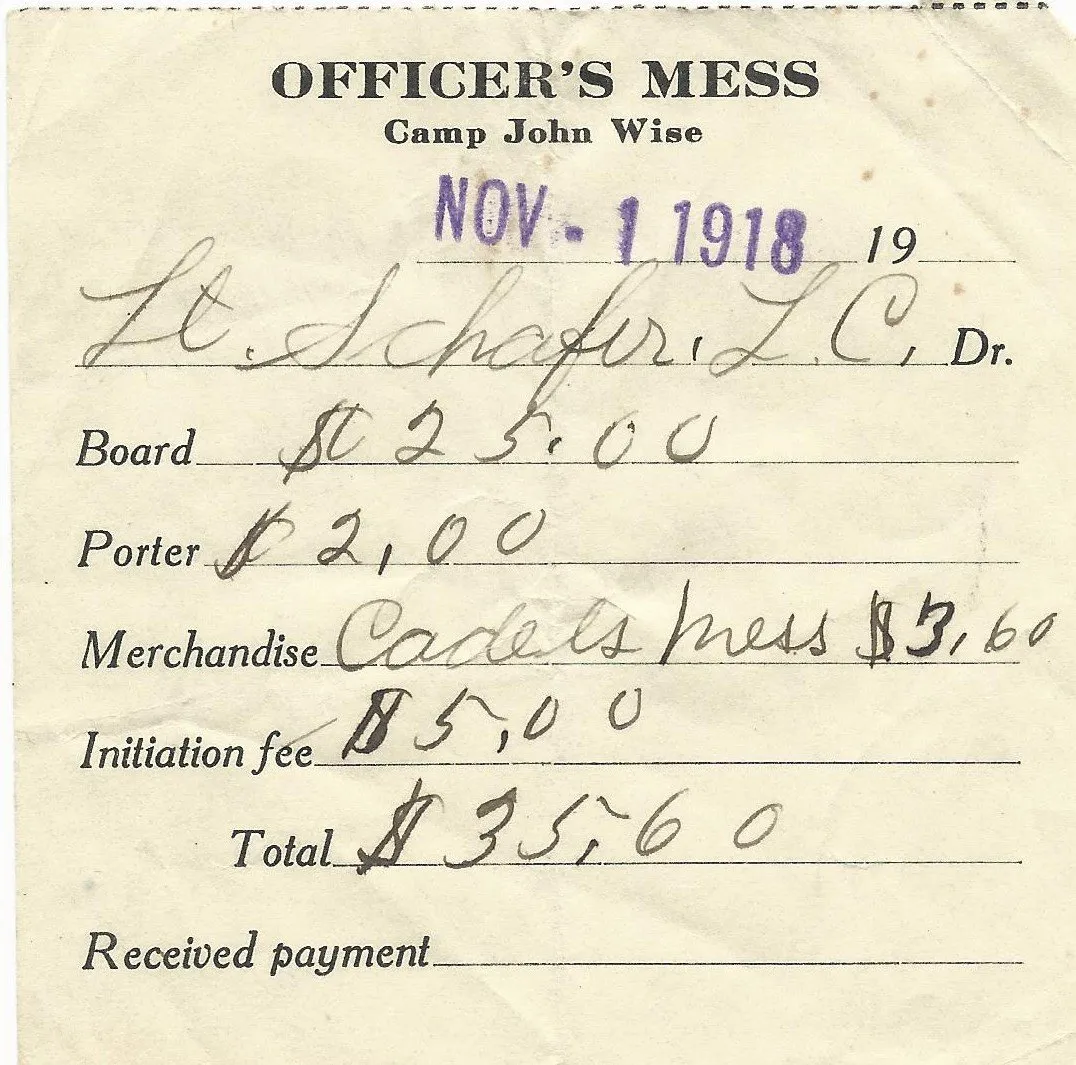 OFFICER'S MESS
Camp John Wise
NOV - 1 1918 19
Lt. Schafer, L. C. Dr.
Board $ 25.00
Porter $ 2,00
Merchandise Cadets Mess $3,60
Initiation fee $5,00
Total $35,60
Received payment